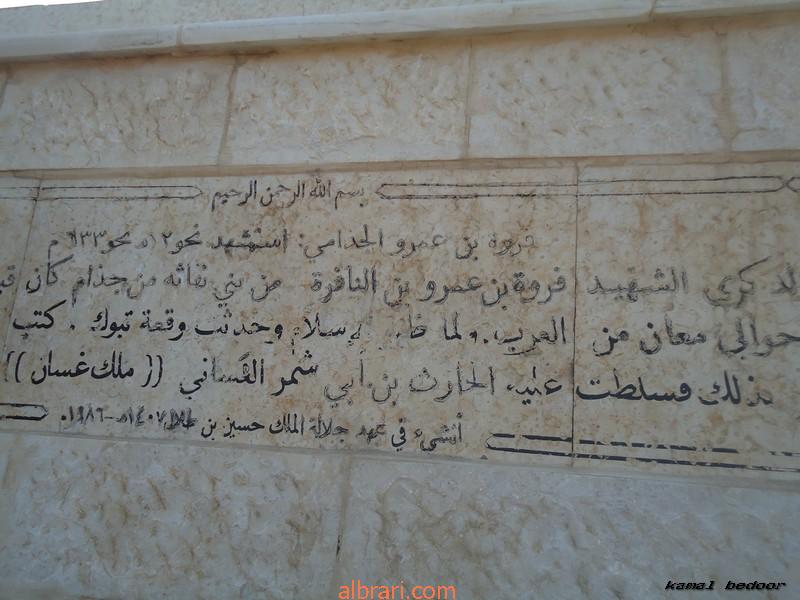 بسم الله الرحمن الرحيم
فروة بن عمرو الجذامي: استشهد نحو ١٢ه نحو ٦٣٣م
لذكرى الشهيد فروة بن عمرو بن النافرة من بني نفاثه من جذام كان
حوالي معان من العرب. ولما الإسلام وحدثت وقعة تبوك. كتب
بذلك فسلطت عليه الحارث بن أبي شمر الغساني (( ملك غسان ))
أنشيء في عهد جلالة الملك حسين بن طلال ١٤٠٧ه-١٩٨٦م
albrari.com
kamal bedoor